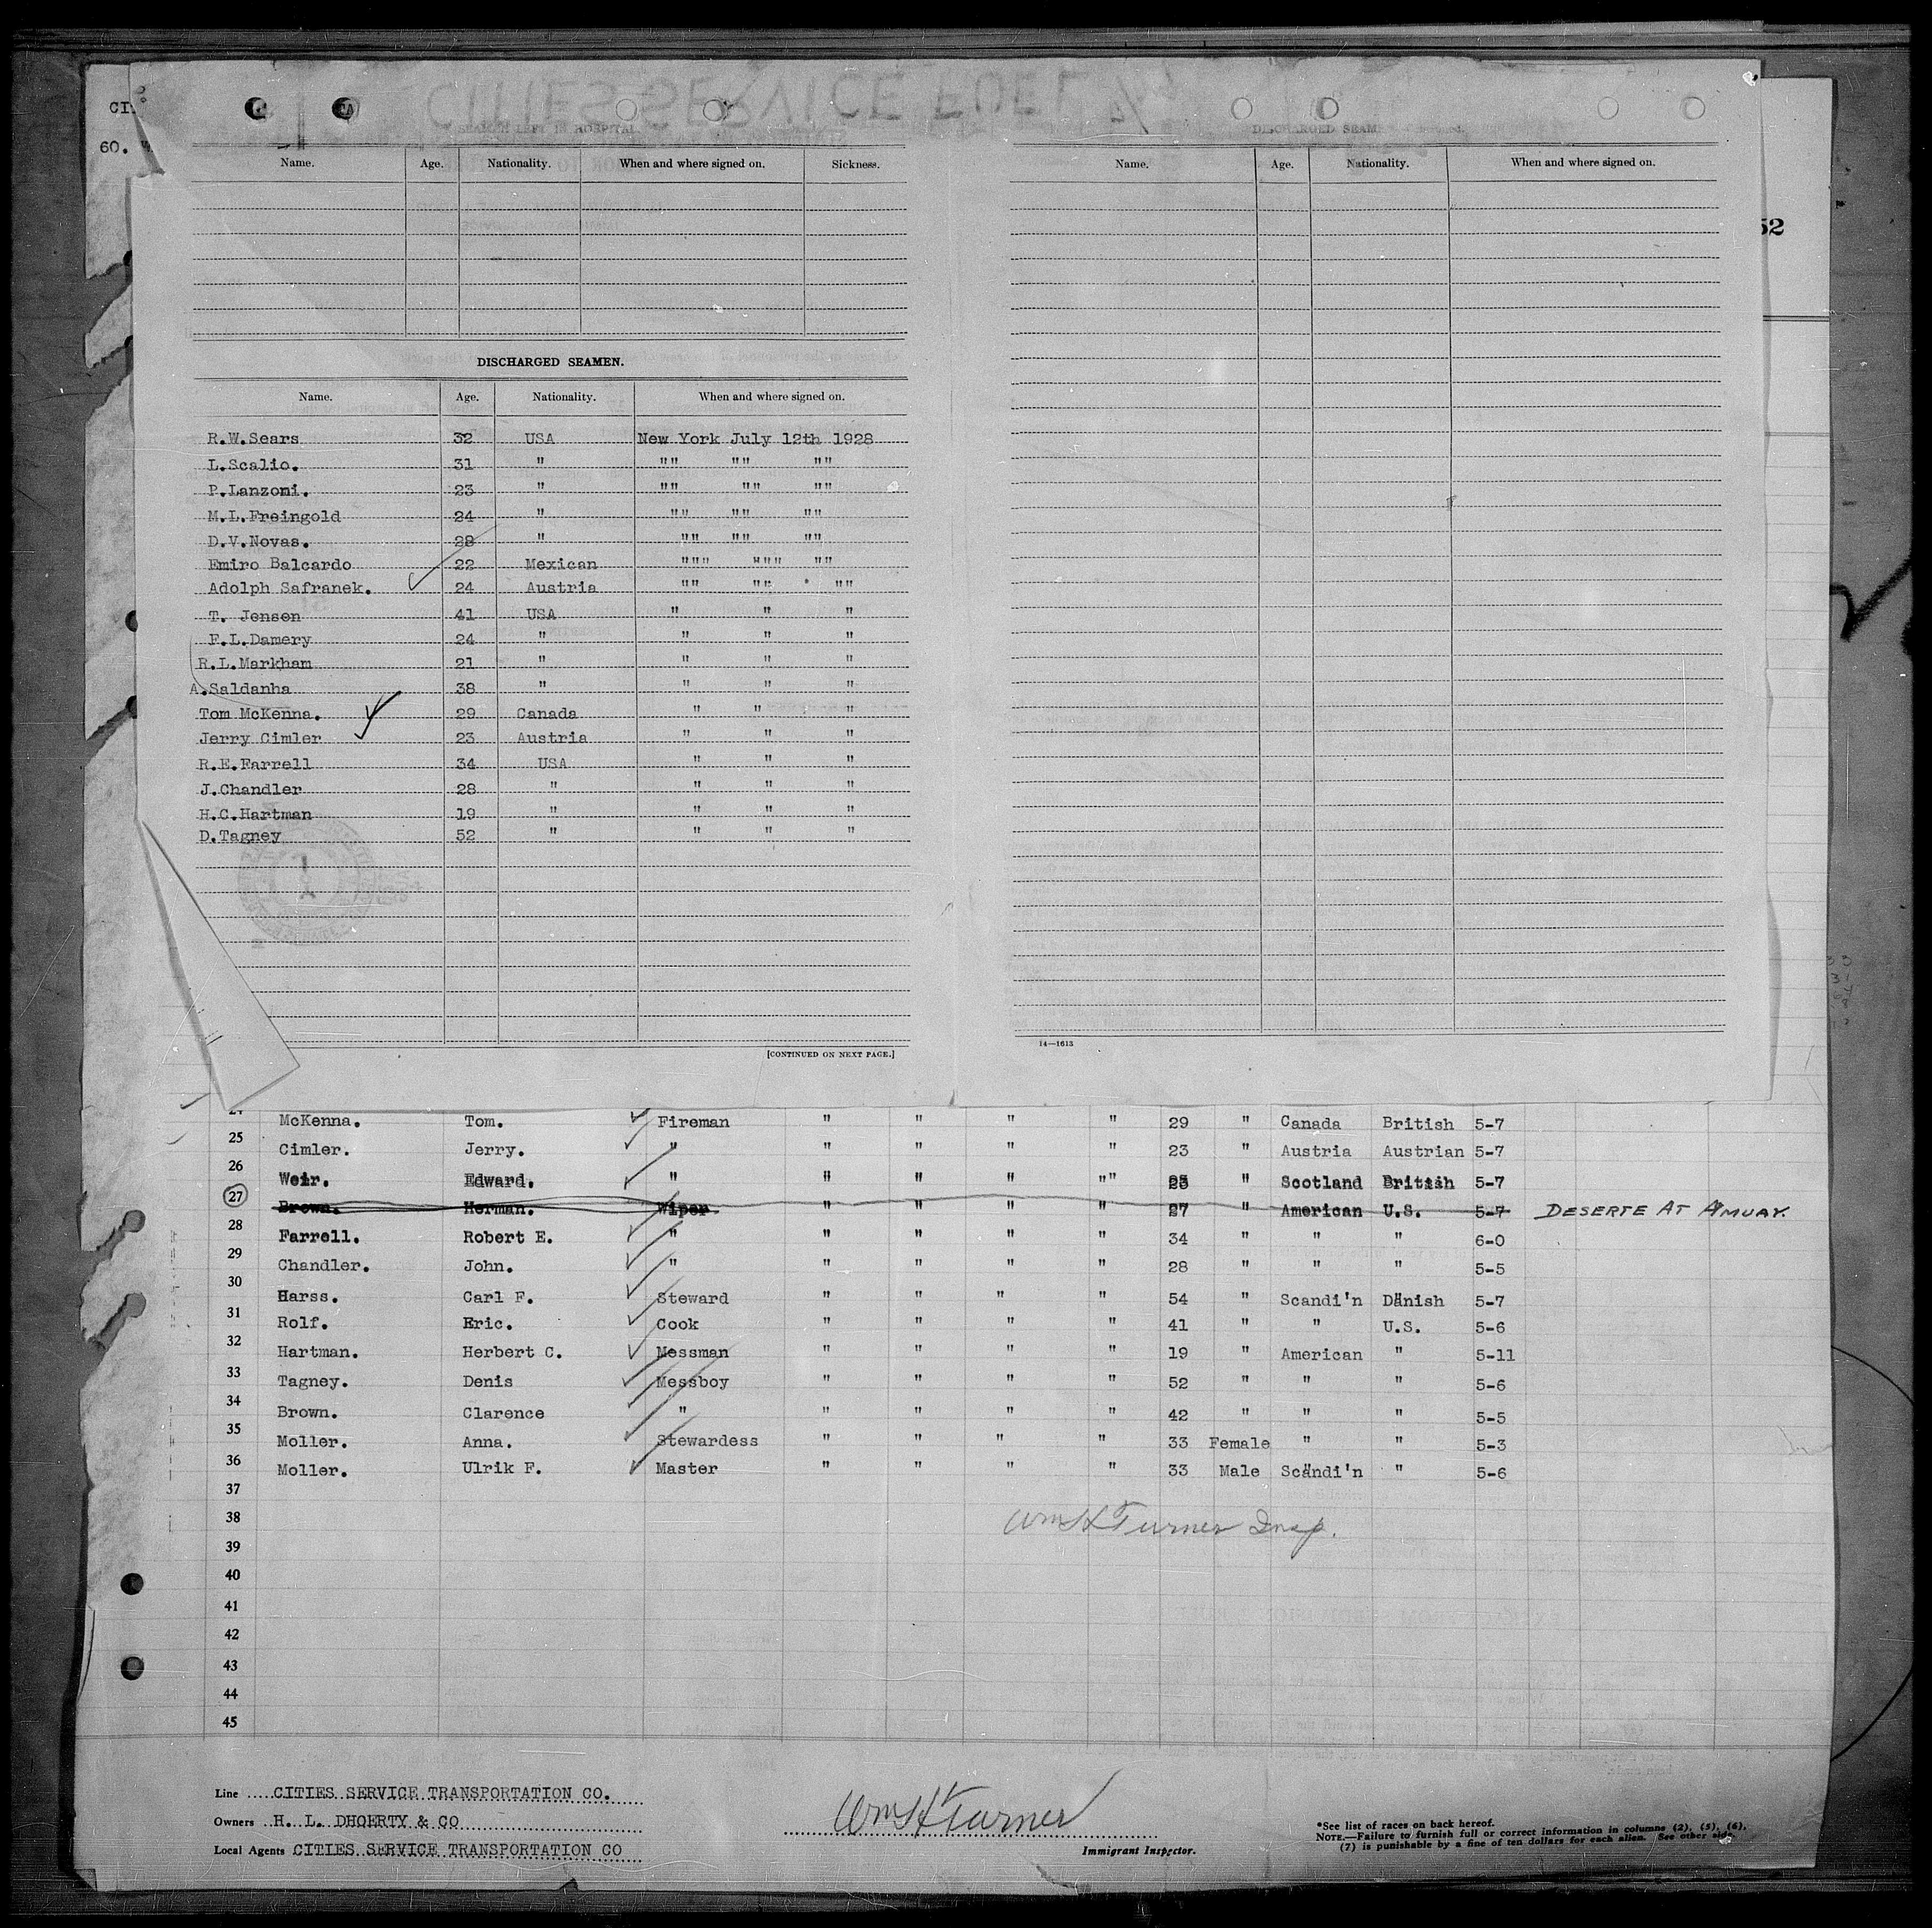 CI
60.
52
CITIES SERVICE FUEL
SEAMEN LEFT IN HOSPITAL
Name. Age. Nationality. When and where signed on. Sickness.
DISCHARGED SEAMEN.
Name. Age. Nationality. When and where signed on.
R.W.Sears 32 USA New York July 12th 1928
L.Scalio. 31 " "" "" ""
P.Lanzoni. 23 " "" "" ""
M.L.Freingold 24 " "" "" ""
D.V.Novas. 28 " "" "" ""
Emiro Balcardo 22 Mexican """ """ ""
Adolph Safranek. 24 Austria "" "" ""
T. Jensen 41 USA " " "
F.L.Damery 24 " " " "
R.L.Markham 21 " " " "
A.Saldanha 38 " " " "
Tom McKenna. 29 Canada " " "
Jerry Cimler 23 Austria " " "
R.E.Farrell 34 USA " " "
J.Chandler 28 " " " "
H.C.Hartman 19 " " " "
D.Tagney 52 " " " "
[CONTINUED ON NEXT PAGE.]
DISCHARGED SEAMEN
Name. Age. Nationality. When and where signed on.
14—1613
24 McKenna. Tom. Fireman " " " " 29 " Canada British 5-7
25 Cimler. Jerry. " " " " " 23 " Austria Austrian 5-7
26 Weir. Edward. " " " " "" " Scotland British 5-7
27 Brown. Herman. Wiper " " " " 27 " American U.S. 5-7 DESERTE AT AMUAY.
28 Farrell. Robert E. " " " " " 34 " " " 6-0
29 Chandler. John. " " " " " 28 " " " 5-5
30 Harss. Carl F. Steward " " " " 54 " Scandi'n Danish 5-7
31 Rolf. Eric. Cook " " " " 41 " " U.S. 5-6
32 Hartman. Herbert C. Messman " " " " 19 " American " 5-11
33 Tagney. Denis Messboy " " " " 52 " " " 5-6
34 Brown. Clarence " " " " " 42 " " " 5-5
35 Moller. Anna. Stewardess " " " " 33 Female " " 5-3
36 Moller. Ulrik F. Master " " " " 33 Male Scandi'n " 5-6
37
38 Wm H Turner Insp.
39
40
41
42
43
44
45
Line CITIES SERVICE TRANSPORTATION CO.
Owners H. L. DHOERTY & CO
Local Agents CITIES SERVICE TRANSPORTATION CO
Wm H Turner
Immigrant Inspector.
*See list of races on back hereof.
NOTE.—Failure to furnish full or correct information in columns (2), (5), (6),
(7) is punishable by a fine of ten dollars for each alien. See other side.